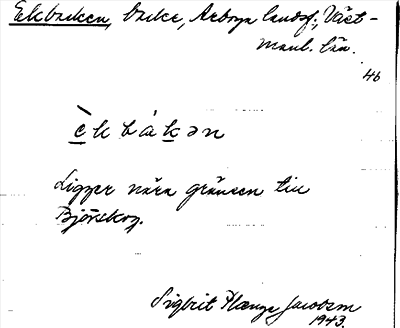 Ekbacken, backe, Arboga landsf., Väst-
manl. län.
46
è k b á k ə n
Ligger nära gränsen till
Björskog.
Sigbrit Plænge Jacobson
1943.